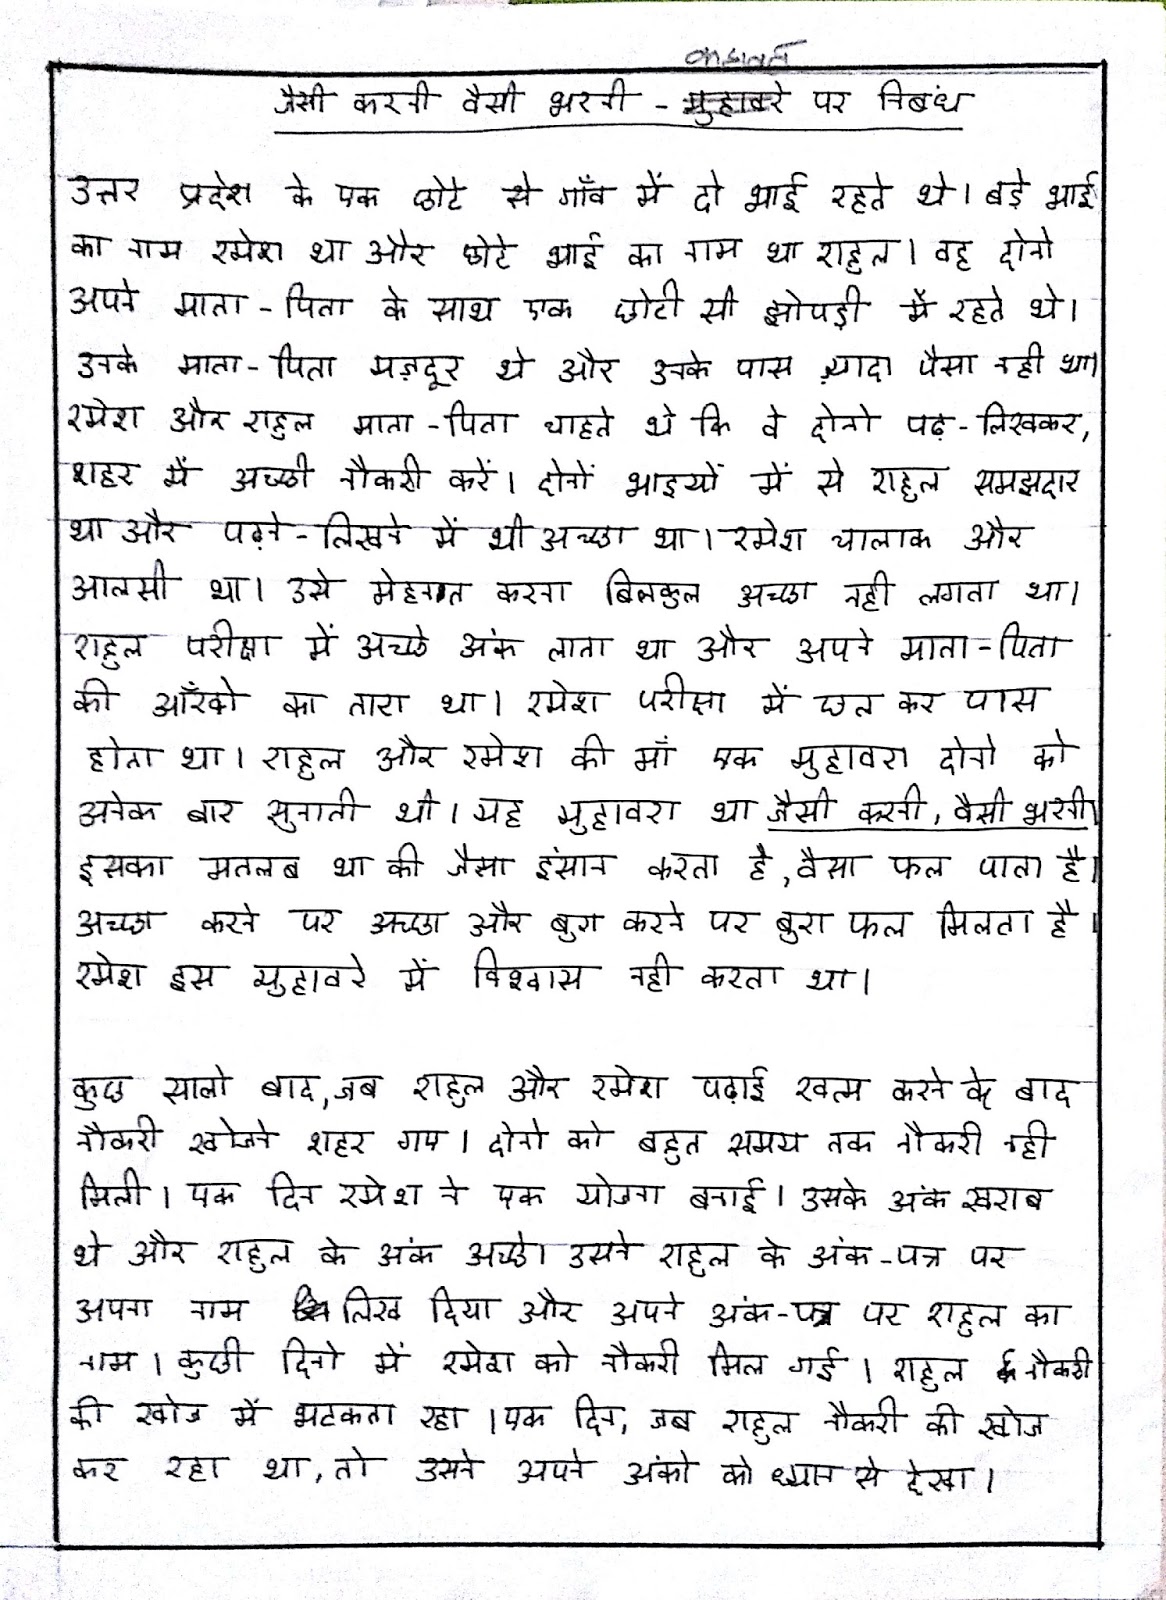 कहावत
जैसी करनी वैसी भरनी - मुहावरे पर निबंध
उत्तर प्रदेश के एक छोटे से गाँव में दो भाई रहते थे। बड़े भाई
का नाम रमेश था और छोटे भाई का नाम था राहुल। वह दोनो
अपने माता-पिता के साथ एक छोटी सी झोपड़ी में रहते थे।
उनके माता-पिता मज़दूर थे और उनके पास ज़्यादा पैसा नही था।
रमेश और राहुल माता-पिता चाहते थे कि वे दोनो पढ़-लिखकर,
शहर में अच्छी नौकरी करें। दोनों भाइयों में से राहुल समझदार
था और पढ़ने-लिखने में भी अच्छा था। रमेश चालाक और
आलसी था। उसे मेहनत करना बिलकुल अच्छा नही लगता था।
राहुल परीक्षा में अच्छे अंक लाता था और अपने माता-पिता
की आँखो का तारा था। रमेश परीक्षा में छल कर पास
होता था। राहुल और रमेश की माँ एक मुहावरा दोनो को
अनेक बार सुनाती थी। यह मुहावरा था जैसी करनी, वैसी भरनी।
इसका मतलब था की जैसा इंसान करता है, वैसा फल पाता है।
अच्छा करने पर अच्छा और बुरा करने पर बुरा फल मिलता है।
रमेश इस मुहावरे में विश्वास नही करता था।
कुछ सालो बाद, जब राहुल और रमेश पढ़ाई खत्म करने के बाद
नौकरी खोजने शहर गए। दोनो को बहुत समय तक नौकरी नही
मिली। एक दिन रमेश ने एक योजना बनाई। उसके अंक खराब
थे और राहुल के अंक अच्छे। उसने राहुल के अंक-पत्र पर
अपना नाम लिख दिया और अपने अंक-पत्र पर राहुल का
नाम। कुछी दिनो में रमेश को नौकरी मिल गई। राहुल नौकरी
की खोज में भटकता रहा। एक दिन, जब राहुल नौकरी की खोज
कर रहा था, तो उसने अपने अंको को ध्यान से देखा।